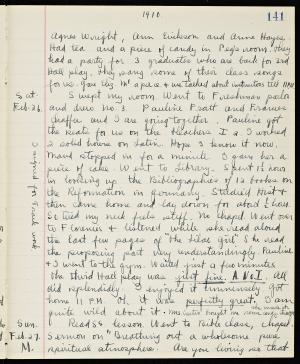 1910
141
Agnes Wright, Ann Erickson and Anna Hayes.
Had tea and a piece of candy in Peg's room. They
had a party for 3 graduates who are back for 3rd
Hall play. They sang some of their class songs
for us.
Sat.
Feb. 26.
I swept my room. Went to Freshman sale
and drew no 3. Pauline Pratt and Frances
Shaffer and I are going together. Pauline got
the seats for us on the bleachers. I worked
2 solid hours on Latin. Hope I know it now.
Maud stopped in for a minute. I gave her a
piece of cake. Went to library. Spent 1 hour
in looking up the Bibliographies of 12 books on
the Reformation in Germany. Studied Hist &
then came home and lay down for about ½ hour.
So tired my neck feels stiff. No chapel. Went over
to Florence & listened while she read aloud
the last few pages of "The Lilac Girl". She read
the proposing part very understandingly. Pauline
& I went to the gym. Waited just a few minutes.
The third Hall play was just fine. A No I. All
did splendidly. I enjoyed it immensely. Got
home 11 P.M. Oh, it was perfectly great. I am
quite wild about it.
I signed for Trial work
Sun.
Feb 27.
M.
Read SS lesson. Went to Bible class, chapel.
Sermon on "Breathing out a wholesome pure
spiritual atmosphere. Are you living so that